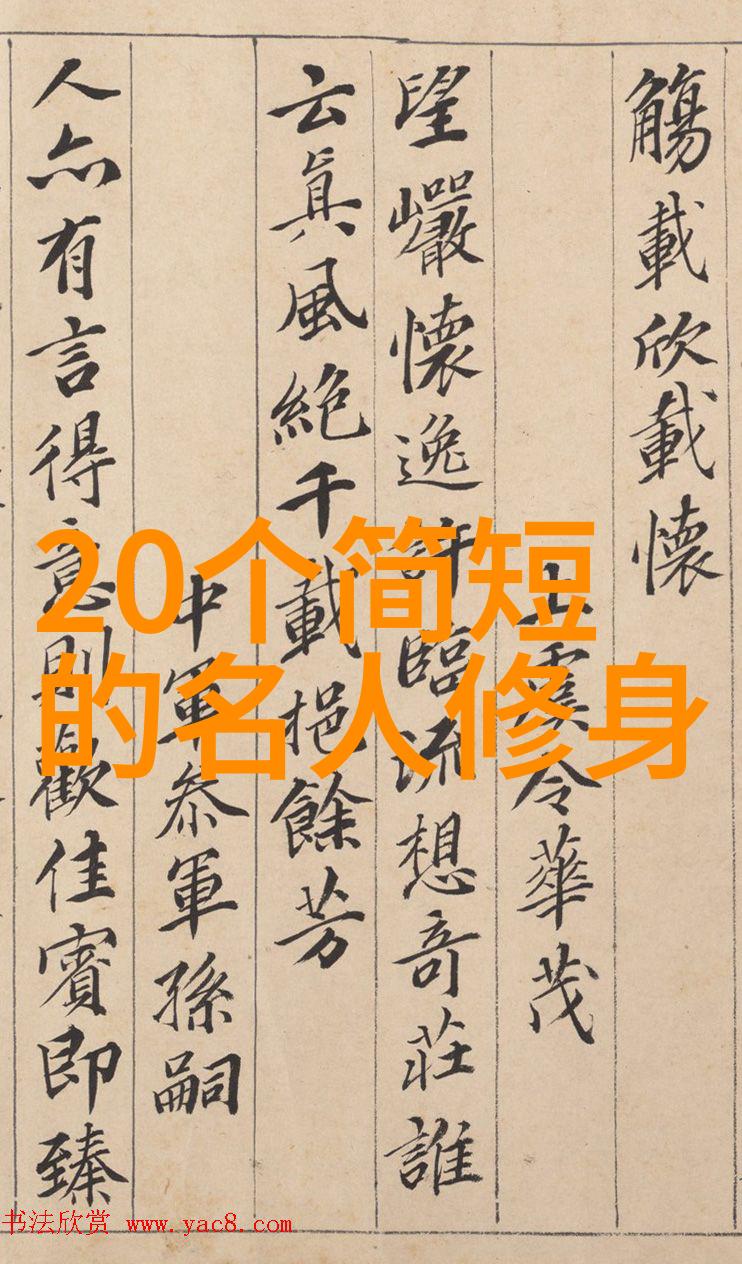 觴載欣載懷
上虞令華茂
望巖懷逸許臨流想奇莊誰
云真風絕千載挹餘芳
中軍參軍孫嗣
人亦有言得意則歡佳賓即臻
20个简短
的名人修身
书法欣赏 www.yac8.com